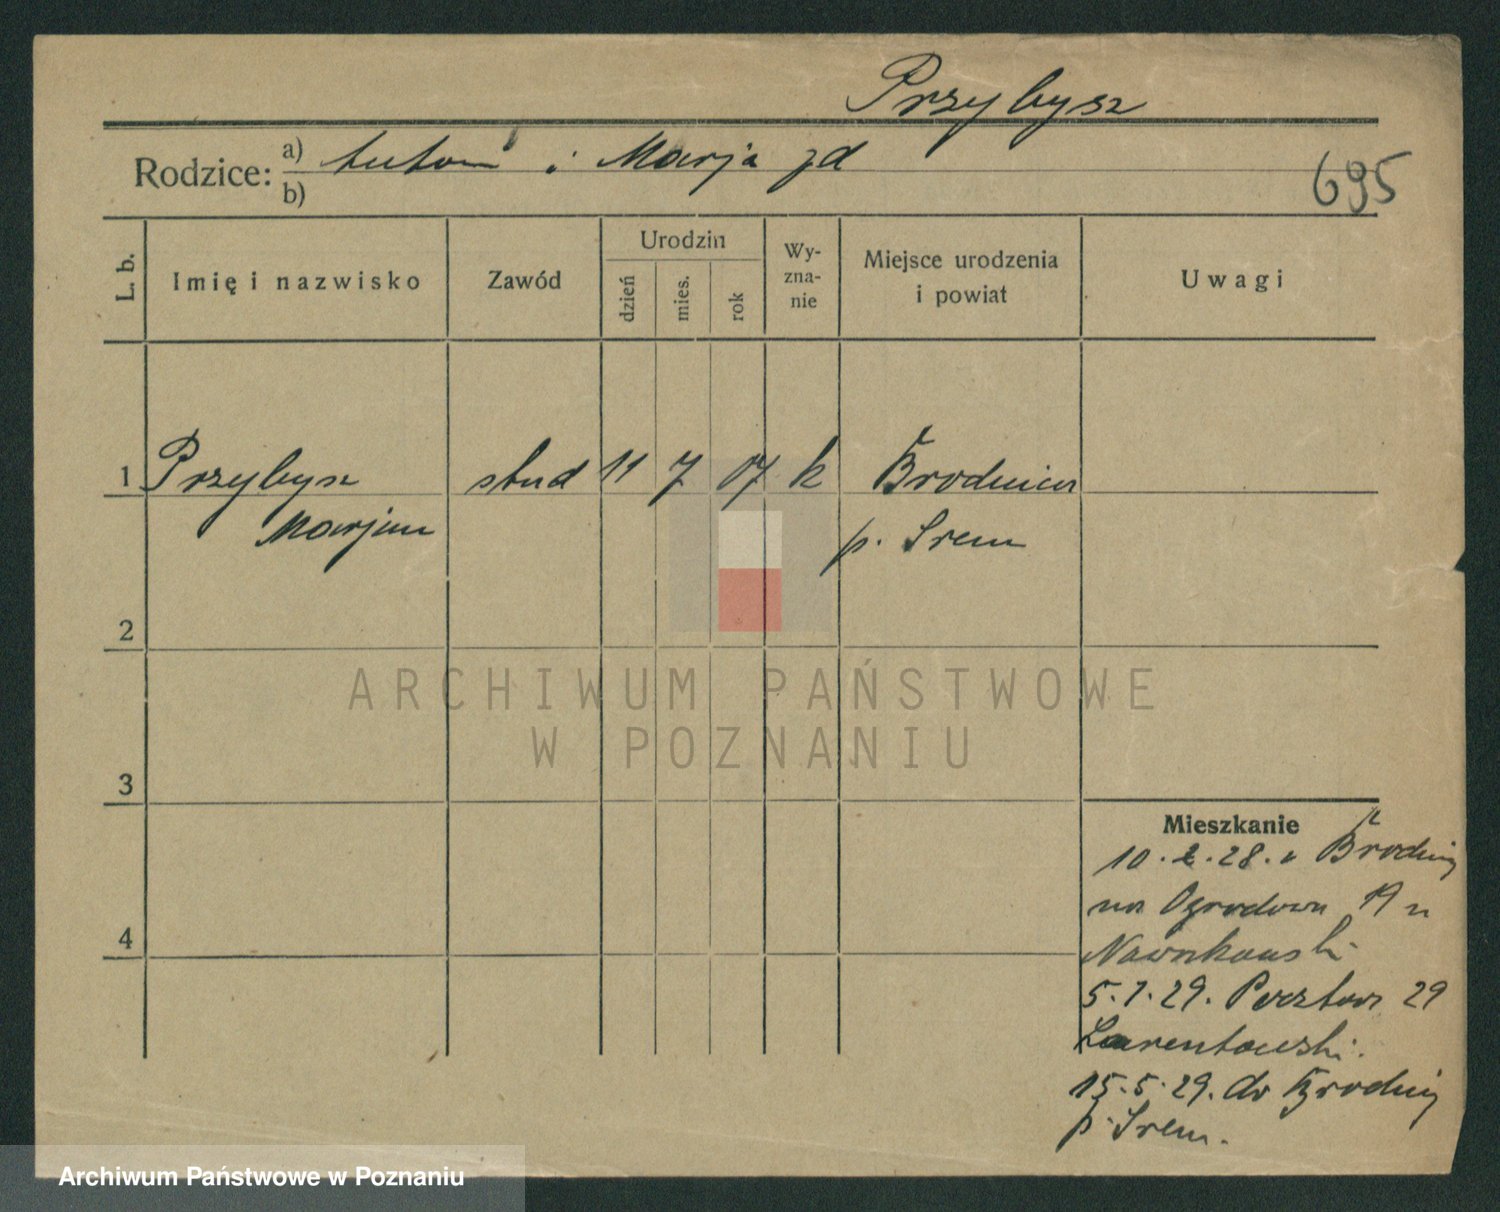 Przybysz
Rodzice: a) Antoni i Marja
b)
695
L. b.
Imię i nazwisko
Zawód
Urodzin
dzień
mies.
rok
Wy-
zna-
nie
Miejsce urodzenia
i powiat
Uwagi
1 Przybysz stud 11 7 07 k Brodnica
Marjan p. Śrem
2
ARCHIWUM PAŃSTWOWE
W POZNANIU
3
4
Mieszkanie
10.2.28. z Brodnicy
na Ogrodowa 19 u
5.1.29. Pocztowa 29
Laurentowski.
15.5.29. do Brodnicy
p. Śrem.
Archiwum Państwowe w Poznaniu